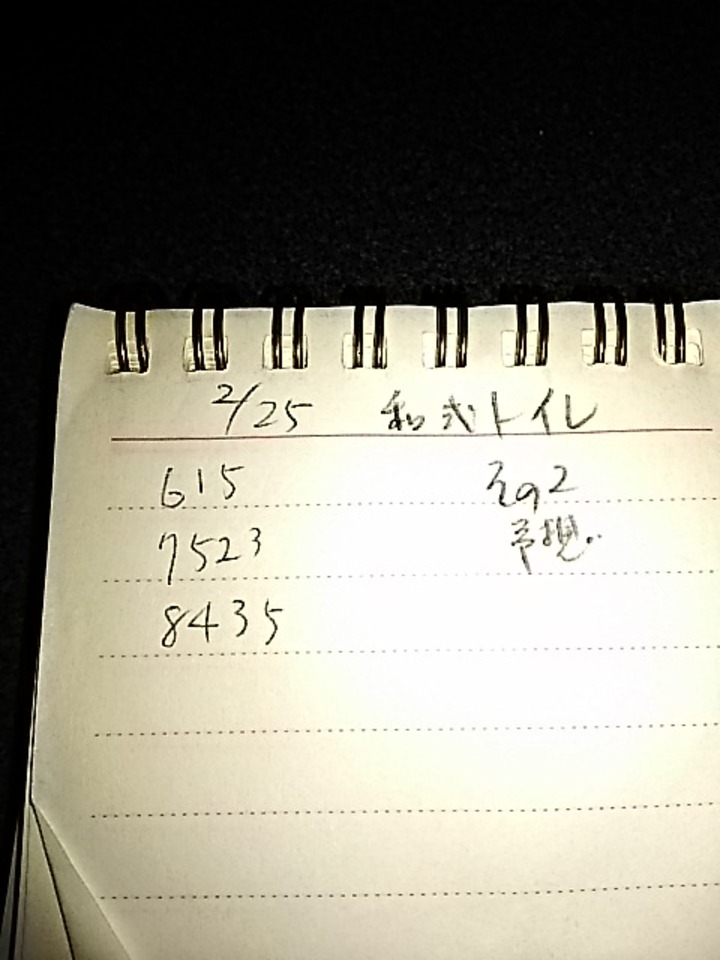 2/25 和式トイレ
615 その2
7523 予想
8435